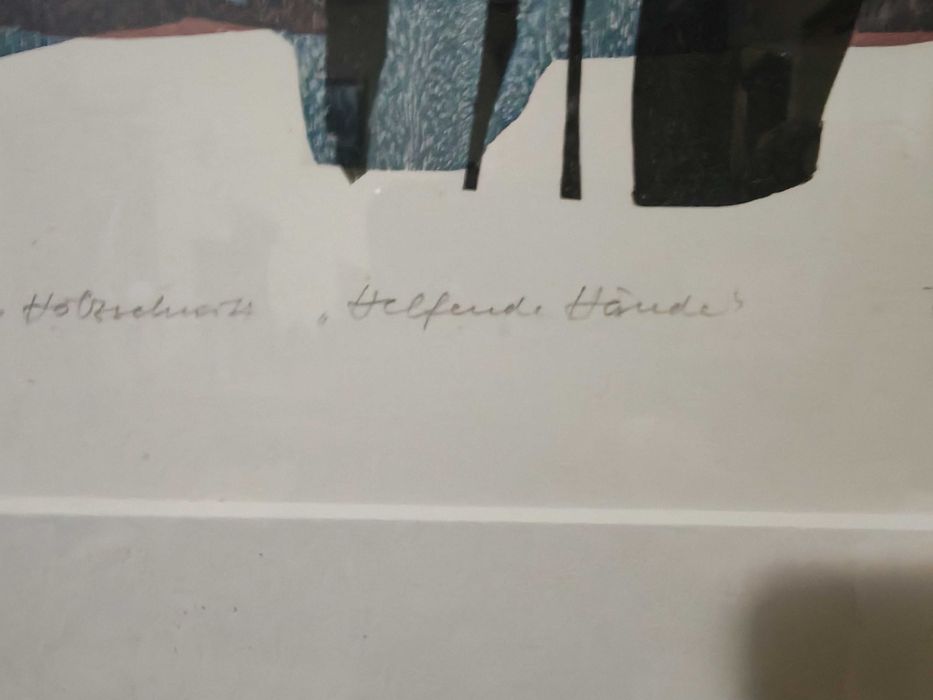 Holzschnitt „Helfende Hände“